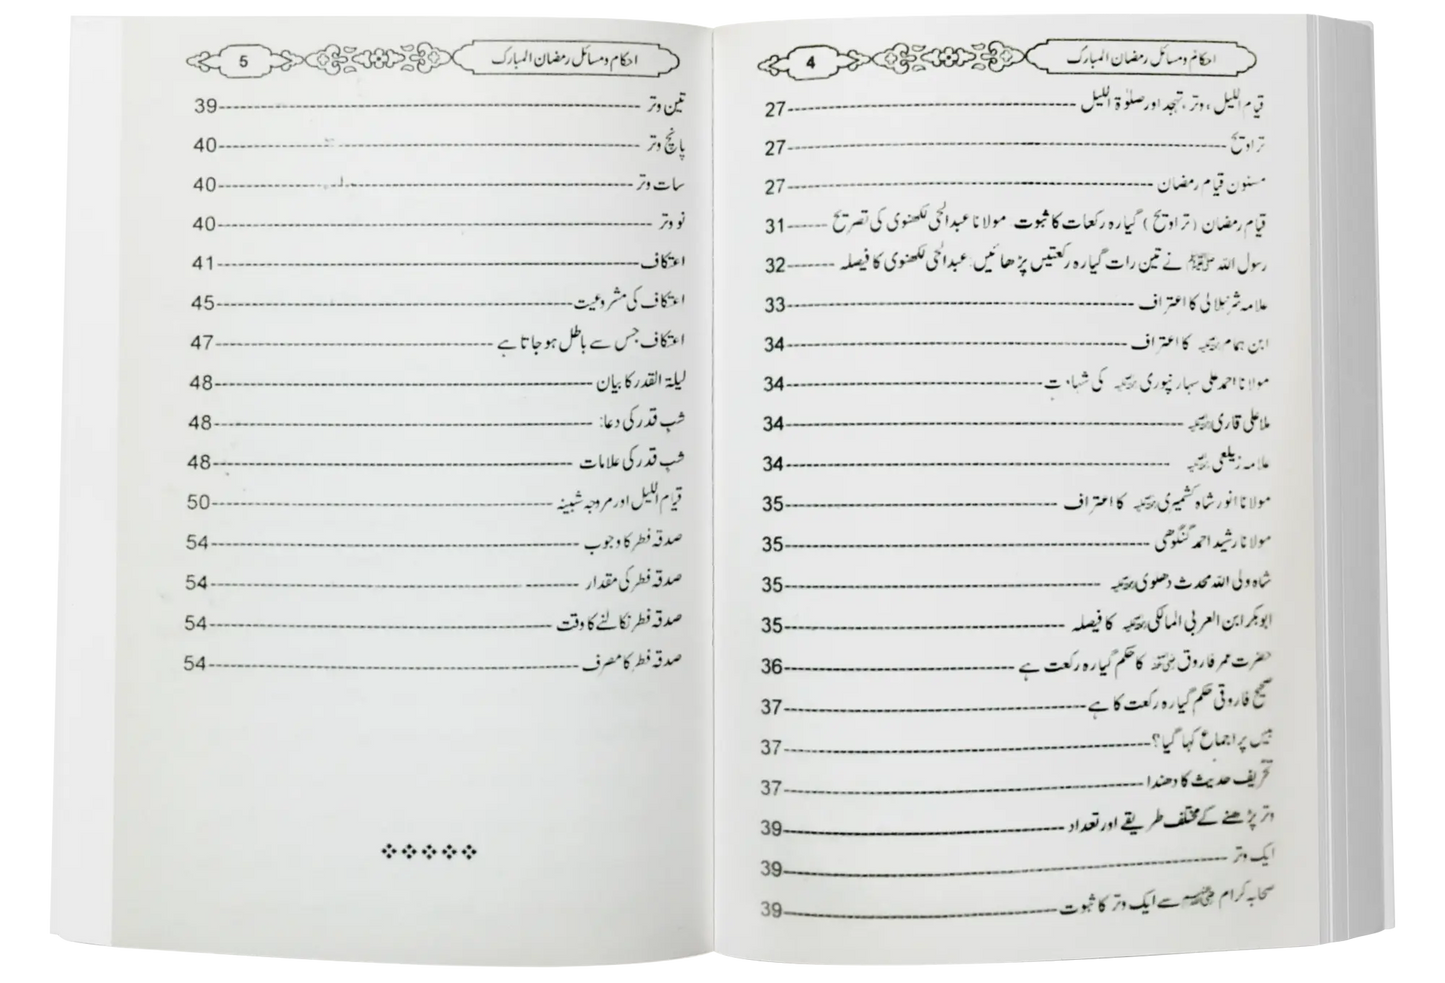 احکام و مسائل رمضان المبارک 4
قیام اللیل، وتر، تہجد اور صلوٰۃ اللیل 27
تراویح 27
مسنون قیام رمضان 27
قیام رمضان (تراویح) گیارہ رکعات کا ثبوت مولانا عبدالحی لکھنوی کی تصریح 31
رسول اللہ ﷺ نے تین رات گیارہ رکعتیں پڑھائیں: عبدالحی لکھنوی کا فیصلہ 32
علامہ شرنبلالی کا اعتراف 33
ابن ہمام رحمۃ اللہ علیہ کا اعتراف 34
مولانا احمد علی سہارنپوری رحمۃ اللہ علیہ کی شہادت 34
ملا علی قاری رحمۃ اللہ علیہ 34
علامہ زیلعی رحمۃ اللہ علیہ 34
مولانا انور شاہ کشمیری رحمۃ اللہ علیہ کا اعتراف 35
مولانا رشید احمد گنگوھی 35
شاہ ولی اللہ محدث دھلوی رحمۃ اللہ علیہ 35
ابوبکر ابن العربی المالکی رحمۃ اللہ علیہ کا فیصلہ 35
حضرت عمر فاروق رضی اللہ عنہ کا حکم گیارہ رکعت ہے 36
صحیح فاروقی حکم گیارہ رکعت کا ہے 37
بیس پر اجماع کہا گیا؟ 37
تحریف حدیث کا دھندا 37
وتر پڑھنے کے مختلف طریقے اور تعداد 39
ایک وتر 39
صحابہ کرام رضی اللہ عنہم سے ایک وتر کا ثبوت 39
احکام و مسائل رمضان المبارک 5
تین وتر 39
پانچ وتر 40
سات وتر 40
نو وتر 40
اعتکاف 41
اعتکاف کی مشروعیت 45
اعتکاف جس سے باطل ہو جاتا ہے 47
لیلۃ القدر کا بیان 48
شب قدر کی دعا: 48
شب قدر کی علامات 48
قیام اللیل اور مروجہ شبینہ 50
صدقہ فطر کا وجوب 54
صدقہ فطر کی مقدار 54
صدقہ فطر نکالنے کا وقت 54
صدقہ فطر کا مصرف 54